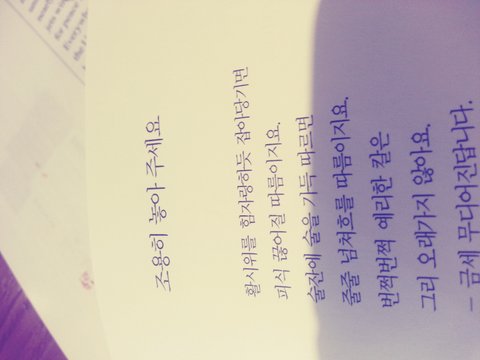 조용히 놓아 주세요
활시위를 힘자랑하듯 잡아당기면
피식 끊어질 따름이지요.
술잔에 술을 가득 따르면
줄줄 넘쳐흐를 따름이지요.
번쩍번쩍 예리한 칼은
그리 오래가지 않아요.
– 금세 무디어진답니다.